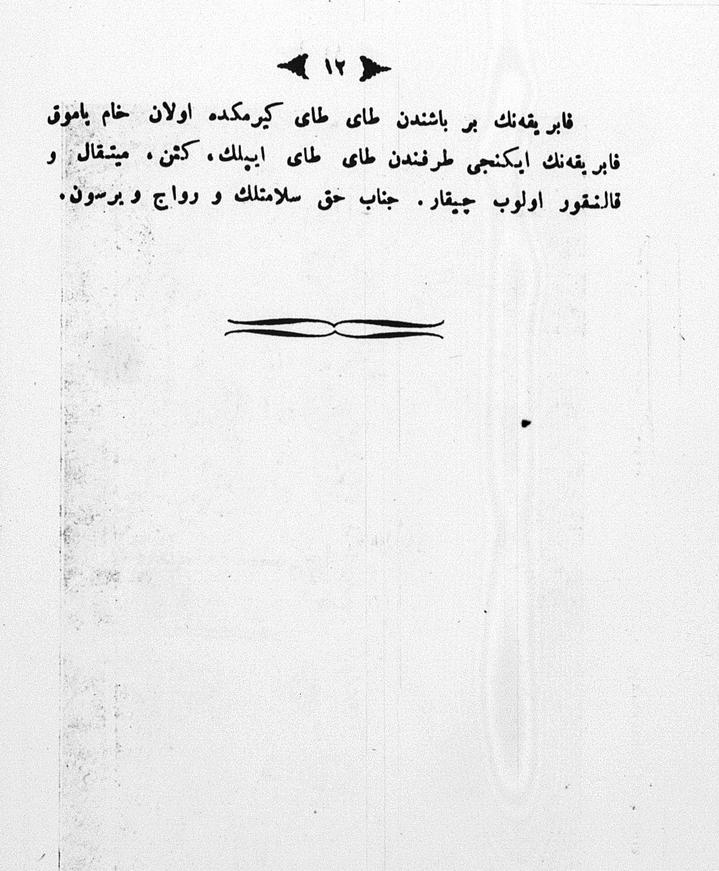 ١٢
فابریقه‌نك بر باشندن طای طای كیرمكده اولان خام پاموق
فابریقه‌نك ایكنجی طرفندن طای طای ایپلك، كتن، میتقال و
قالنقور اولوب چیقار. جناب حق سلامتلك و رواج ویرسون.